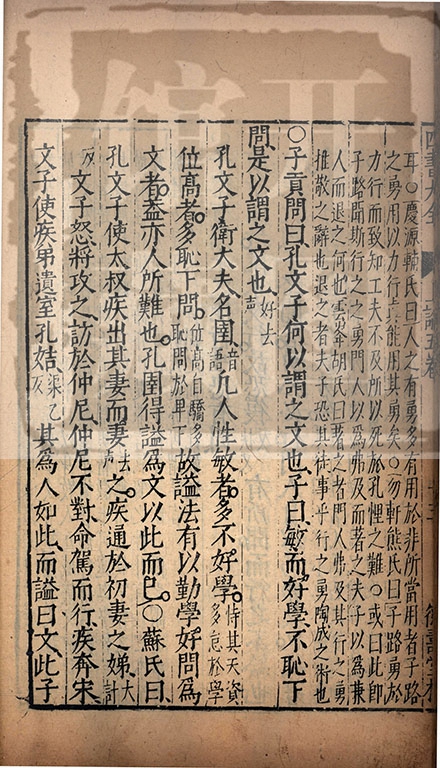 耳○慶源輔氏曰人之有勇多有用於非所當用者子路
之勇用以力行真能用其勇矣○勿軒熊氏曰子路勇於
力行而致知工夫不及所以死於孔悝之難○或曰此即
子路聞斯行之之勇門人以為弗及而著之夫子以為兼
人而退之何也雲峯胡氏曰著之者門人弗及其行之勇
推敬之辭也退之者夫子恐其徒事乎行之勇陶成之術也
○子貢問曰孔文子何以謂之文也子曰敏而好學不恥下
問是以謂之文也好去聲
孔文子衛大夫名圉音語凡人性敏者多不好學恃其天資多怠於學
位高者多恥下問位高自驕多恥問於卑下故謚法有以勤學好問為
文者葢亦人所難也孔圉得謚為文以此而已○蘇氏曰
孔文子使太叔疾出其妻而妻去聲之疾通於初妻之娣大計
反文子怒將攻之訪於仲尼仲尼不對命駕而行疾奔宋
文子使疾弟遺室孔姞渠乙反其為人如此而謚曰文此子
四書大全